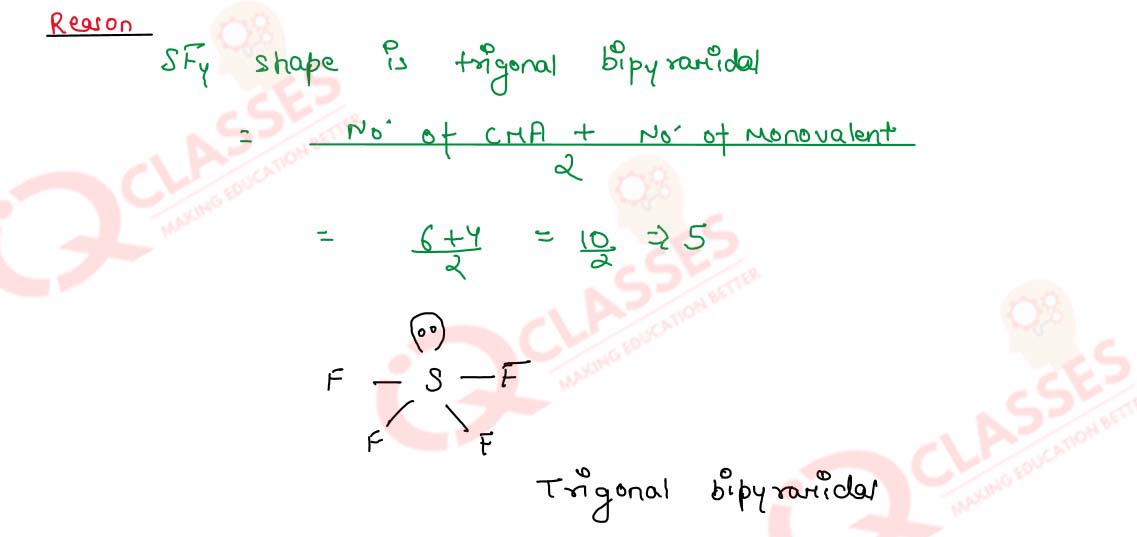 Reason
SF4 shape is trigonal bipyramidal
= No. of CMA + No. of Monovalent
2
= 6+4 = 10 => 5
2 2
F — S — F
F F
Trigonal bipyramidal
IQ CLASSES
MAKING EDUCATION BETTER
IQ CLASSES
MAKING EDUCATION BETTER
IQ CLASSES
MAKING EDUCATION BETTER